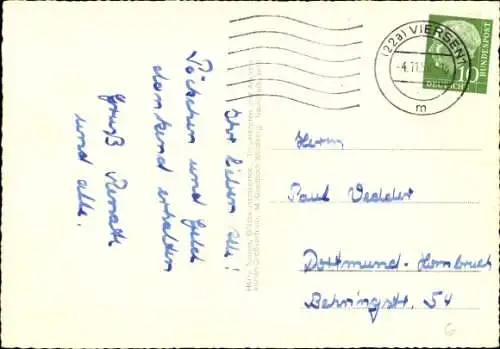 Ihr lieben alle!
Päckchen und Geld
dankend erhalten
Gruß Renate
und alle.
(22a) VIERSEN 1
-4.11.5
m
10
DEUTSCHE
BUNDESPOST
Herrn
Paul Vedder
Dortmund-Hombruch
Behringstr. 54
6